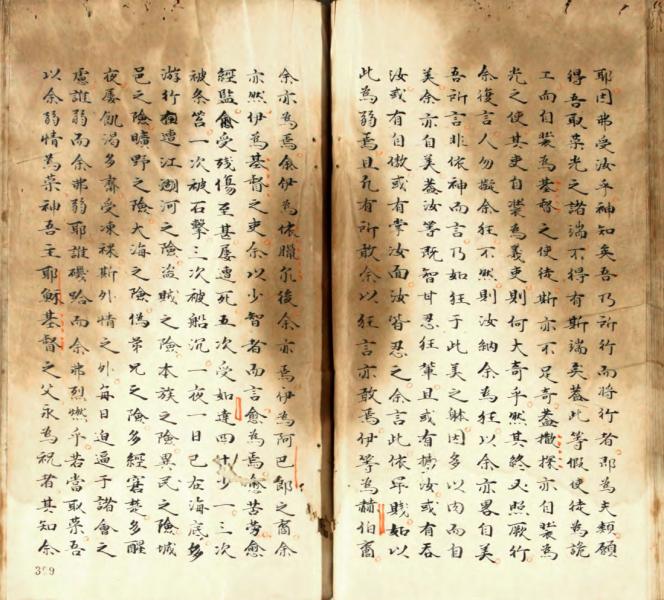 耶因弗受汝乎神知矣吾乃所行而將行者即為夫類願
得吾取荣光之諸端不得有斯端矣蓋此等假使徒為詭
工而自裝為基督之使徒斯亦不足奇蓋撒探亦自裝為
光之使其吏自裝為義吏則何大奇乎然其終必照厥行
余復言人勿擬余狂不然則汝納余為狂以余亦畧自美
吾所言非依神而言乃如狂于此美之躰因多以肉而自
美余亦自美蓋汝等既智甘忍狂輩且或有携汝或有吞
汝或有自傲或有掌汝面汝皆忍之余言此依卑賤如以
此為弱焉且凢有所敢余以狂言亦敢焉伊等為赫伯裔
余亦為焉伊為依臘尔後余亦焉伊為阿巴郎之裔余
亦然伊為基督之吏余以少智者而言愈為焉愈苦劳愈
經監愈受残傷至甚屡遭死五次受如達四十少一三次
被条笞一次被石擊三次被船沉一夜一日已在海底多
游行遭江河之險盗賊之險本族之險異民之險城
邑之險曠野之險大海之險偽弟兄之險多經寠楚多醒
夜屡飢渴多齋受凍裸斯外情之外每日迫逼于諸會之
慮誰弱而余弗弱耶誰礙跲而余弗烈燃乎若當取荣吾
以余弱情為荣神吾主耶穌基督之父永為祝者其知余